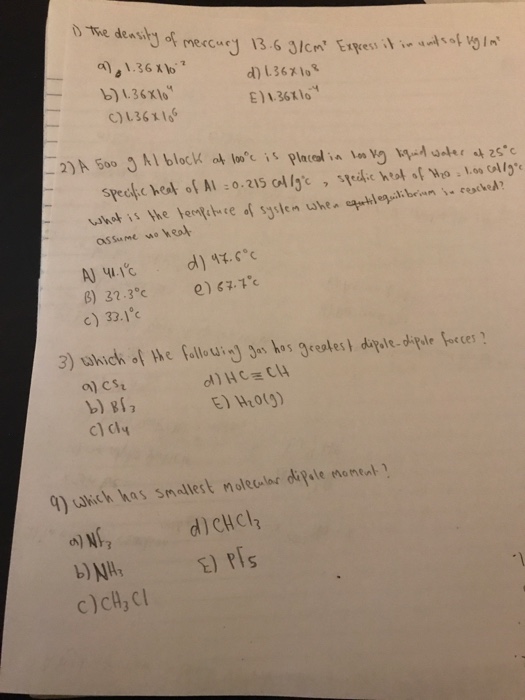 1) The density of mercury 13.6 g/cm³ Express it in units of kg/m³
a) 1.36x10⁻²
d) 1.36x10⁸
b) 1.36x10⁴
E) 1.36x10⁻⁴
c) 1.36x10⁶
2) A 500 g Al block at 100°c is placed in 100 kg liquid water at 25°c
specific heat of Al = 0.215 cal/g°c, specific heat of H₂O = 1.00 cal/g°c
what is the temperture of system when equilibrium is reached?
assume no heat
A) 41.1°c
d) 47.6°c
B) 32.3°c
e) 67.7°c
c) 33.1°c
3) which of the following gas has greatest dipole-dipole forces?
a) CS₂
d) HC≡CH
b) Bf₃
E) H₂O(g)
c) Cl4
9) which has smallest molecular dipole moment?
a) Nf₃
d) CHCl₃
b) NH₃
E) Pf5
c) CH₃Cl